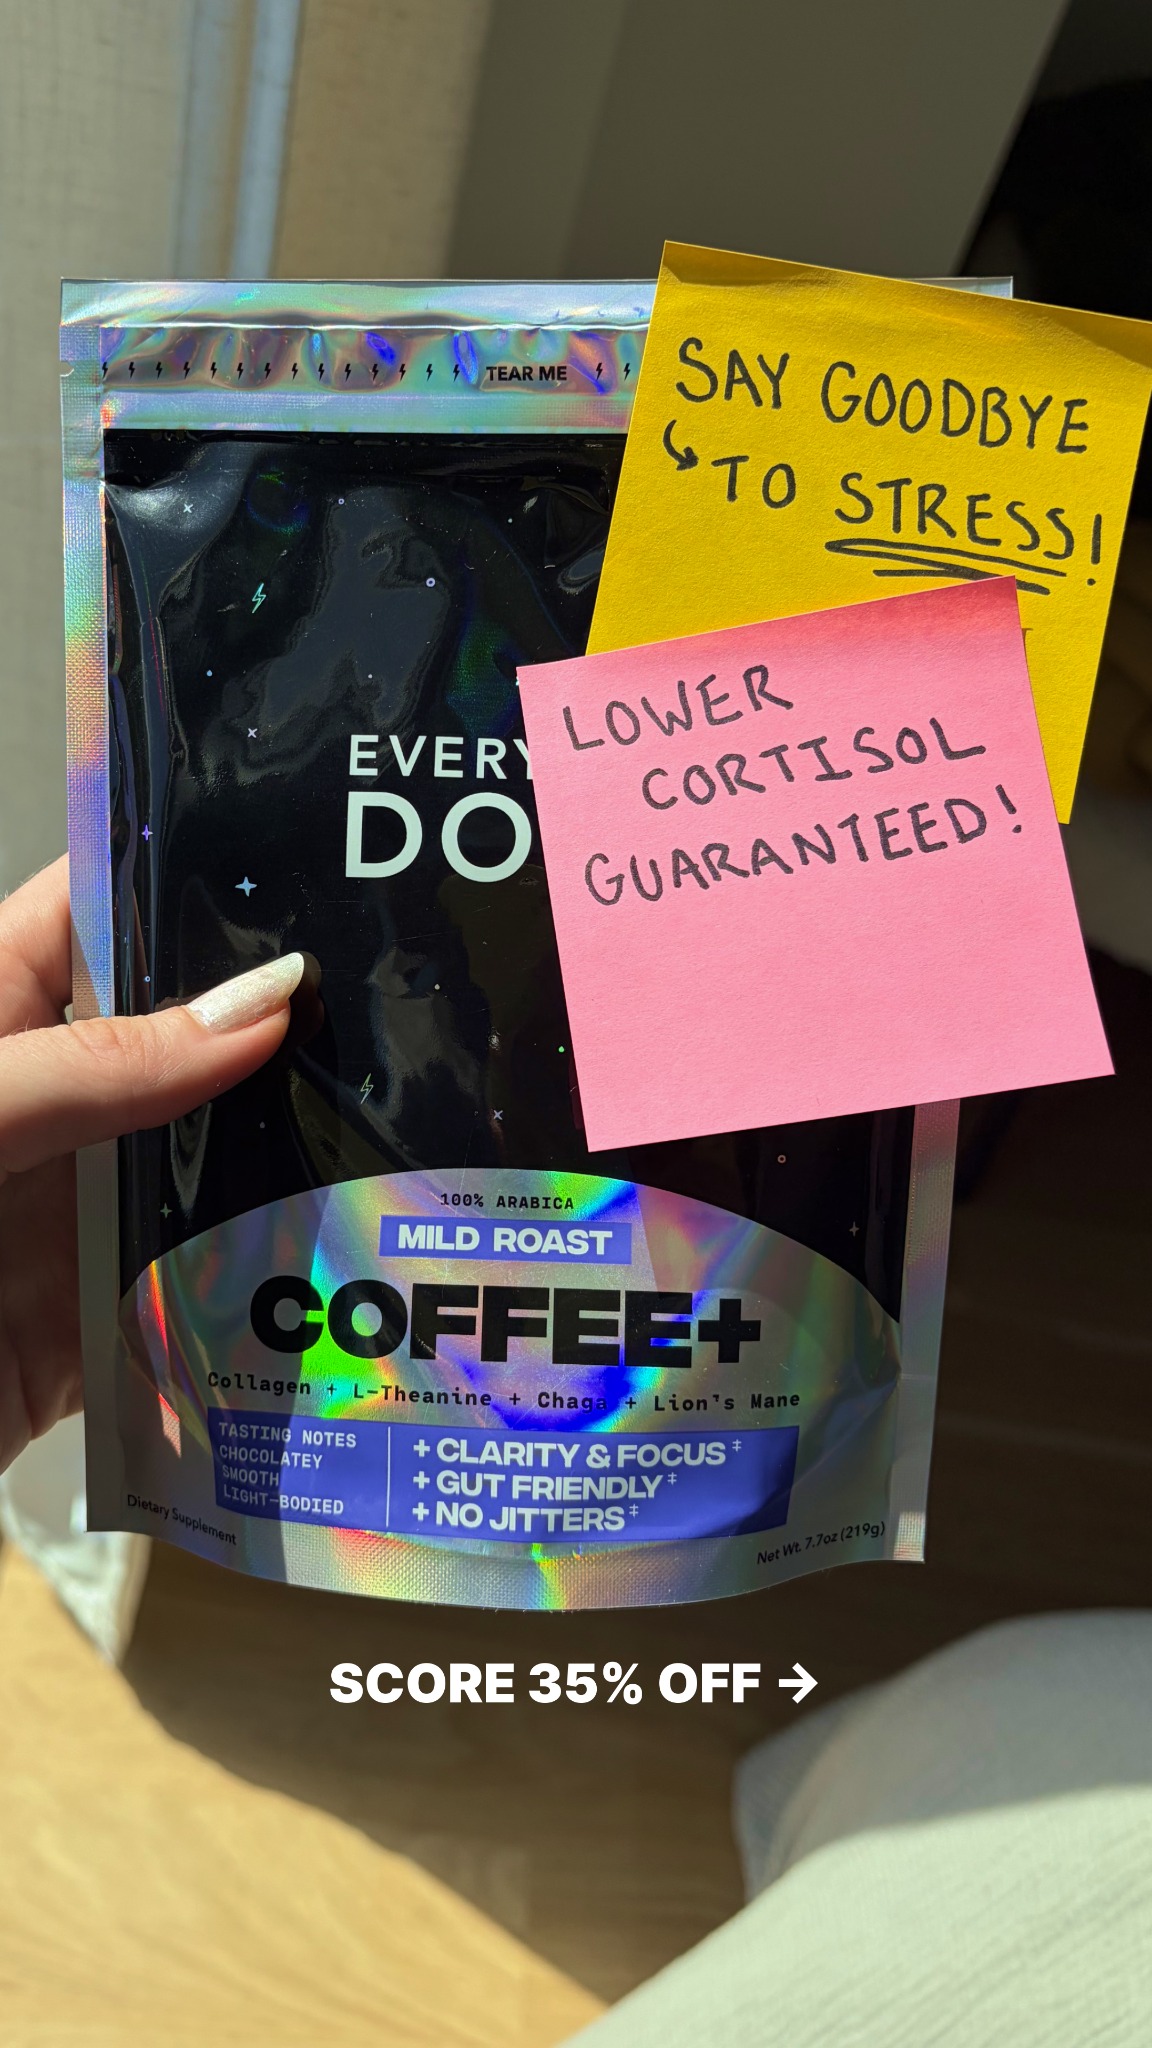 TEAR ME
SAY GOODBYE
TO STRESS!
LOWER
CORTISOL
GUARANTEED!
EVERY
DO
100% ARABICA
MILD ROAST
COFFEE+
Collagen + L-Theanine + Chaga + Lion's Mane
TASTING NOTES
CHOCOLATEY
SMOOTH
LIGHT-BODIED
+ CLARITY & FOCUS‡
+ GUT FRIENDLY‡
+ NO JITTERS‡
Dietary Supplement
Net Wt. 7.7oz (219g)
SCORE 35% OFF →